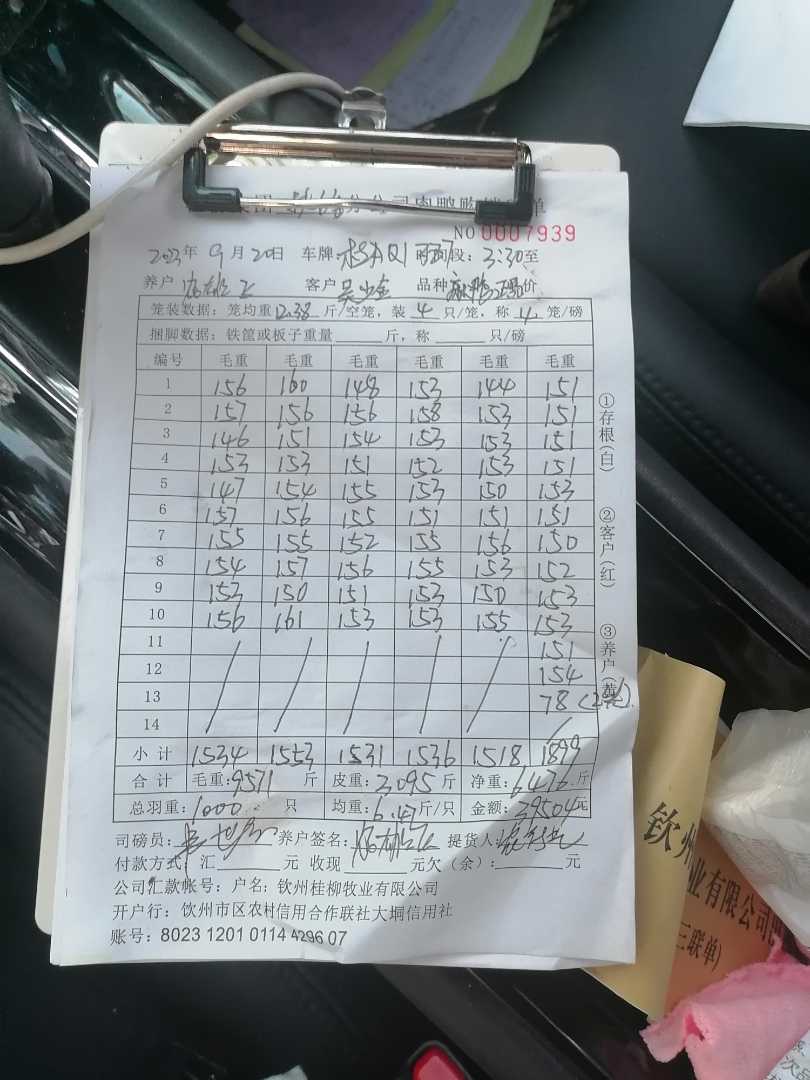 分公司肉鸭购销单
NO 0007939
2023年 9月 20日 车牌: 时间段: 3:30至
养户 客户 品种 价
笼装数据: 笼均重12.38斤/空笼, 装 4 只/笼, 称 4 笼/磅
捆脚数据: 铁筐或板子重量 斤, 称 只/磅
编号 毛重 毛重 毛重 毛重 毛重 毛重
1 156 160 148 153 144 151
2 157 156 156 158 153 151
3 146 151 154 153 153 151
4 153 153 151 152 153 151
5 147 154 155 153 150 153
6 157 156 155 151 151 151
7 155 155 152 155 156 150
8 154 157 156 155 153 152
9 153 150 151 153 150 153
10 156 161 153 153 155 153
11 151
12 154
13 78
14
小计 1534 1553 1531 1536 1518 1899
合计 毛重: 9571 斤 皮重: 3095 斤 净重: 6476 斤
总羽重: 1000 只 均重: 6.47 斤/只 金额: 39504元
司磅员: 养户签名: 提货人:
付款方式: 汇 元 收现 元欠(余): 元
公司汇款帐号: 户名: 钦州桂柳牧业有限公司
开户行: 钦州市区农村信用合作联社大垌信用社
账号: 8023 1201 0114 4296 07
①存根(白)
②客户(红)
③养户(黄)
钦州
业有限公司
三联单)